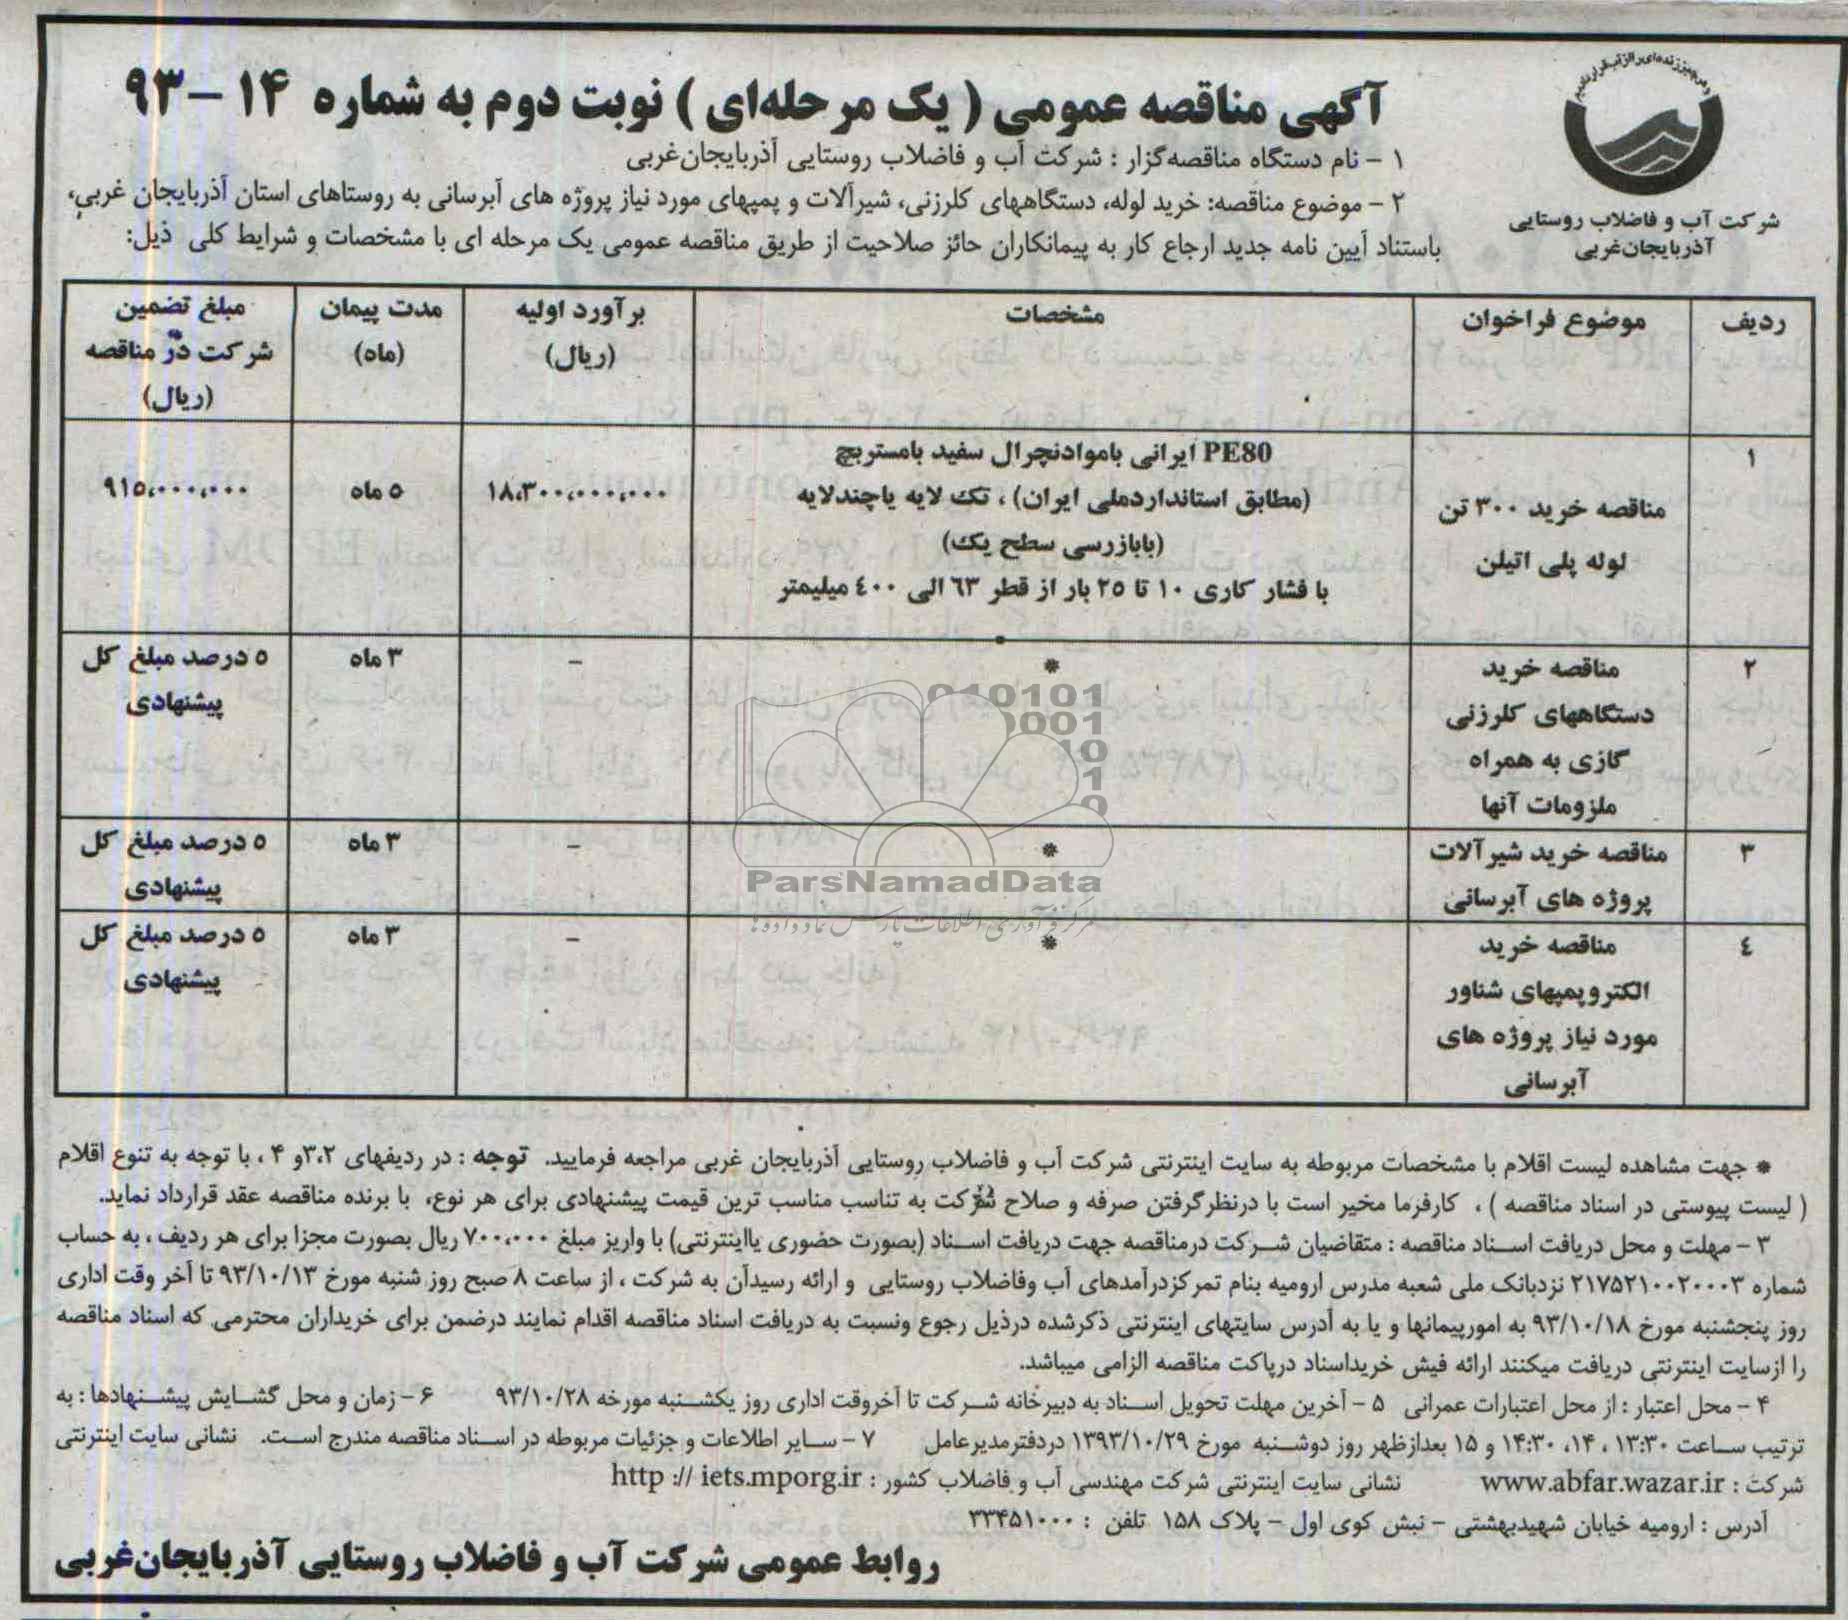 و من الماء کل شیء حی
شرکت آب و فاضلاب روستایی
آذربایجان‌غربی
آگهی مناقصه عمومی ( یک مرحله‌ای ) نوبت دوم به شماره ۱۴ – ۹۳
۱ – نام دستگاه مناقصه‌گزار : شرکت آب و فاضلاب روستایی آذربایجان‌غربی
۲ – موضوع مناقصه: خرید لوله، دستگاههای کلرزنی، شیرآلات و پمپهای مورد نیاز پروژه های آبرسانی به روستاهای استان آذربایجان غربی،
باستناد آیین نامه جدید ارجاع کار به پیمانکاران حائز صلاحیت از طریق مناقصه عمومی یک مرحله ای با مشخصات و شرایط کلی ذیل:
ردیف | موضوع فراخوان | مشخصات | برآورد اولیه (ریال) | مدت پیمان (ماه) | مبلغ تضمین شرکت در مناقصه (ریال)
۱ | مناقصه خرید ۳۰۰ تن لوله پلی اتیلن | PE80 ایرانی باموادنچرال سفید بامستربچ
(مطابق استانداردملی ایران) ، تک لایه یاچندلایه
(بابازرسی سطح یک)
با فشار کاری ۱۰ تا ۲۵ بار از قطر ۶۳ الی ۴۰۰ میلیمتر | ۱۸،۳۰۰،۰۰۰،۰۰۰ | ۵ ماه | ۹۱۵،۰۰۰،۰۰۰
۲ | مناقصه خرید دستگاههای کلرزنی گازی به همراه ملزومات آنها | * | – | ۳ ماه | ۵ درصد مبلغ کل پیشنهادی
۳ | مناقصه خرید شیرآلات پروژه های آبرسانی | * | – | ۳ ماه | ۵ درصد مبلغ کل پیشنهادی
۴ | مناقصه خرید الکتروپمپهای شناور مورد نیاز پروژه های آبرسانی | * | – | ۳ ماه | ۵ درصد مبلغ کل پیشنهادی
ParsNamadData
مرکز فرآوری اطلاعات پارس نماد داده ها
* جهت مشاهده لیست اقلام با مشخصات مربوطه به سایت اینترنتی شرکت آب و فاضلاب روستایی آذربایجان غربی مراجعه فرمایید. توجه : در ردیفهای ۳،۲و ۴ ، با توجه به تنوع اقلام
( لیست پیوستی در اسناد مناقصه ) ، کارفرما مخیر است با درنظرگرفتن صرفه و صلاح شرکت به تناسب مناسب ترین قیمت پیشنهادی برای هر نوع، با برنده مناقصه عقد قرارداد نماید.
۳ – مهلت و محل دریافت اسناد مناقصه : متقاضیان شرکت درمناقصه جهت دریافت اسناد (بصورت حضوری یااینترنتی) با واریز مبلغ ۷۰۰،۰۰۰ ریال بصورت مجزا برای هر ردیف ، به حساب
شماره ۲۱۷۵۲۱۰۰۲۰۰۰۳ نزدبانک ملی شعبه مدرس ارومیه بنام تمرکزدرآمدهای آب وفاضلاب روستایی و ارائه رسیدآن به شرکت ، از ساعت ۸ صبح روز شنبه مورخ ۹۳/۱۰/۱۳ تا آخر وقت اداری
روز پنجشنبه مورخ ۹۳/۱۰/۱۸ به امورپیمانها و یا به آدرس سایتهای اینترنتی ذکرشده درذیل رجوع ونسبت به دریافت اسناد مناقصه اقدام نمایند درضمن برای خریداران محترمی که اسناد مناقصه
را ازسایت اینترنتی دریافت میکنند ارائه فیش خریداسناد درپاکت مناقصه الزامی میباشد.
۴ – محل اعتبار : از محل اعتبارات عمرانی ۵ – آخرین مهلت تحویل اسناد به دبیرخانه شرکت تا آخروقت اداری روز یکشنبه مورخه ۹۳/۱۰/۲۸ ۶ – زمان و محل گشایش پیشنهادها : به
ترتیب ساعت ۱۳:۳۰ ، ۱۴، ۱۴:۳۰ و ۱۵ بعدازظهر روز دوشنبه مورخ ۱۳۹۳/۱۰/۲۹ دردفترمدیرعامل ۷ – سایر اطلاعات و جزئیات مربوطه در اسناد مناقصه مندرج است. نشانی سایت اینترنتی
شرکت : www.abfar.wazar.ir نشانی سایت اینترنتی شرکت مهندسی آب و فاضلاب کشور : http :// iets.mporg.ir
آدرس : ارومیه خیابان شهیدبهشتی – نبش کوی اول – پلاک ۱۵۸ تلفن : ۳۳۴۵۱۰۰۰
روابط عمومی شرکت آب و فاضلاب روستایی آذربایجان‌غربی